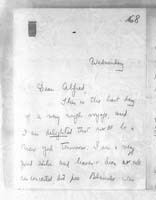 68
Wednesday
Dear Alfred,
This is the last day
of a very rough voyage, and
I am delighted that we'll be in
New York Tomorrow. I am a very
good sailor and haven't been at all